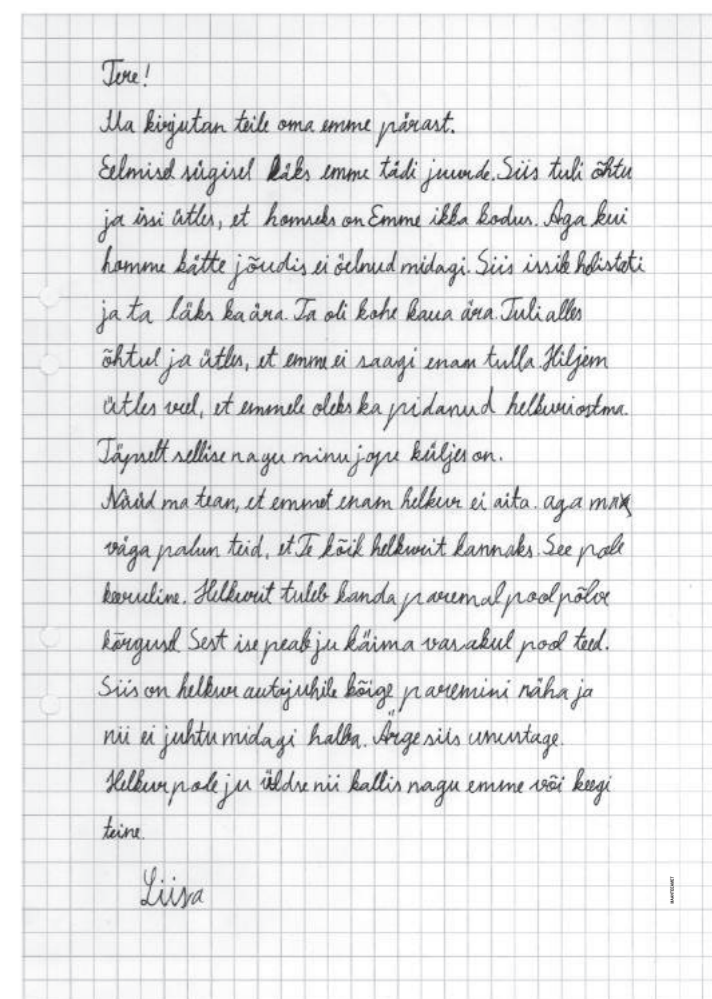 Tere!
Ma kirjutan teile oma emme pärast.
Eelmisel sügisel läks emme tädi juurde. Siis tuli õhtu
ja issi ütles, et homseks on Emme ikka kodus. Aga kui
homme kätte jõudis ei öelnud midagi. Siis issile helistati
ja ta läks ka ära. Ta oli kohe kaua ära. Tuli alles
õhtul ja ütles, et emme ei saagi enam tulla. Hiljem
ütles veel, et emmele oleks ka pidanud helkuri ostma.
Täpselt sellise nagu minu jope küljes on.
Nüüd ma tean, et emmet enam helkur ei aita. aga ma
väga palun teid, et Te kõik helkurit kannaks. See pole
keeruline. Helkurit tuleb kanda paremal pool põlve
kõrgusel Sest ise peab ju käima vasakul pool teed.
Siis on helkur autojuhile kõige paremini näha ja
nii ei juhtu midagi halba. Ärge siis unustage.
Helkur pole ju üldse nii kallis nagu emme või keegi
teine.
Liisa
MAANTEEAMET